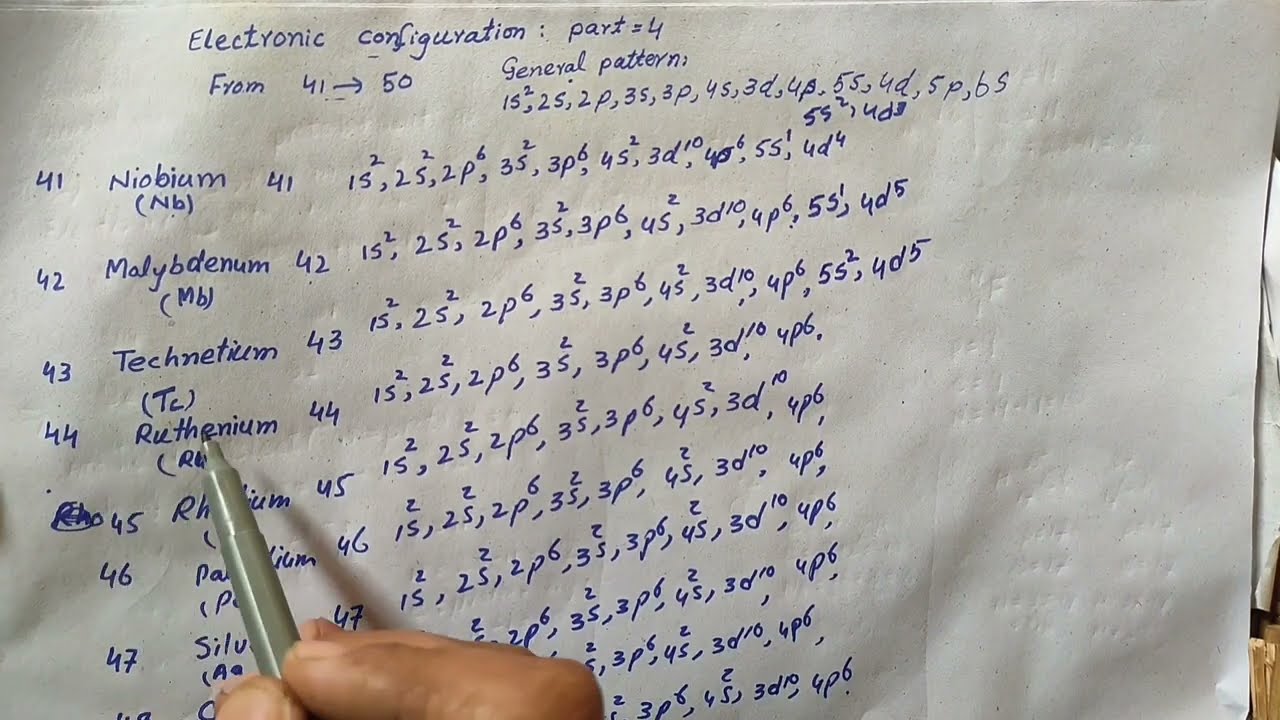 Electronic configuration: part=4
From 41→50
General pattern:
1s², 2s, 2p, 3s, 3p, 4s, 3d, 4p, 5s, 4d, 5p, 6s
5s², 4d³
41 Niobium 41 1s², 2s², 2p⁶, 3s², 3p⁶, 4s², 3d¹⁰, 4p⁶, 5s¹, 4d⁴
(Nb)
42 Malybdenum 42 1s², 2s², 2p⁶, 3s², 3p⁶, 4s², 3d¹⁰, 4p⁶, 5s¹, 4d⁵
(Mb)
43 Technetium 43 1s², 2s², 2p⁶, 3s², 3p⁶, 4s², 3d¹⁰, 4p⁶, 5s², 4d⁵
(Tc)
44 Ruthenium 44 1s², 2s², 2p⁶, 3s², 3p⁶, 4s², 3d¹⁰, 4p⁶.
45 45 1s², 2s², 2p⁶, 3s², 3p⁶, 4s², 3d¹⁰, 4p⁶,
46 46 1s², 2s², 2p⁶, 3s², 3p⁶, 4s², 3d¹⁰, 4p⁶,
47 47 1s², 2s², 2p⁶, 3s², 3p⁶, 4s², 3d¹⁰, 4p⁶,
2p⁶, 3s², 3p⁶, 4s², 3d¹⁰, 4p⁶,
3p⁶, 4s², 3d¹⁰, 4p⁶,
3p⁶, 4s², 3d¹⁰, 4p⁶.